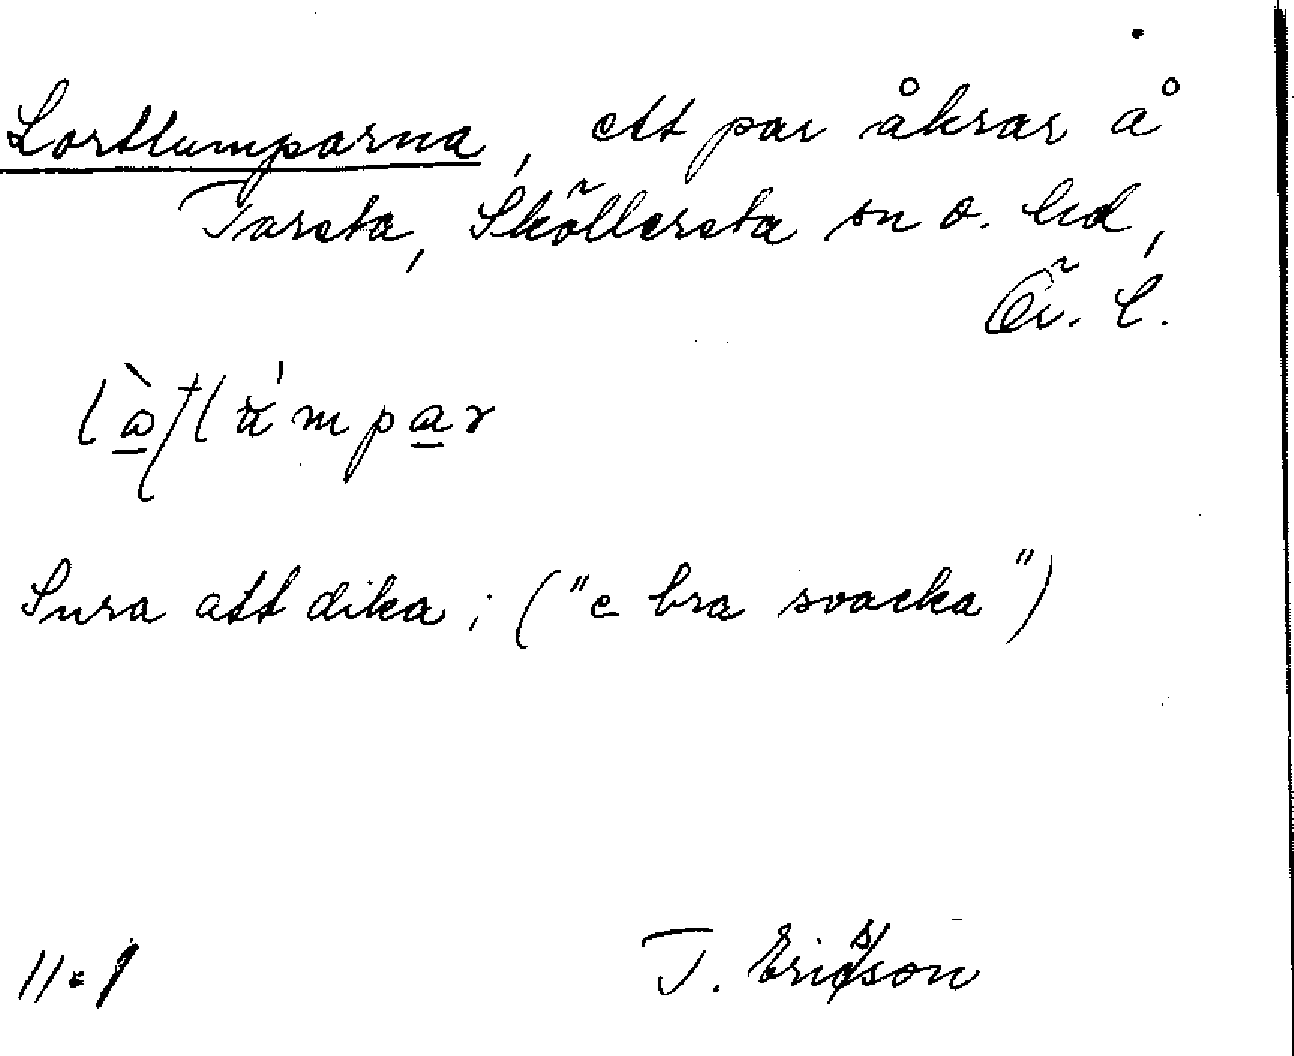 Lortlumparna, ett par åkrar å
Tarsta, Sköllersta sn o. hd,
Ör. l.
Sura att dika; ("e bra svacka")
11.1
T. Ericsson